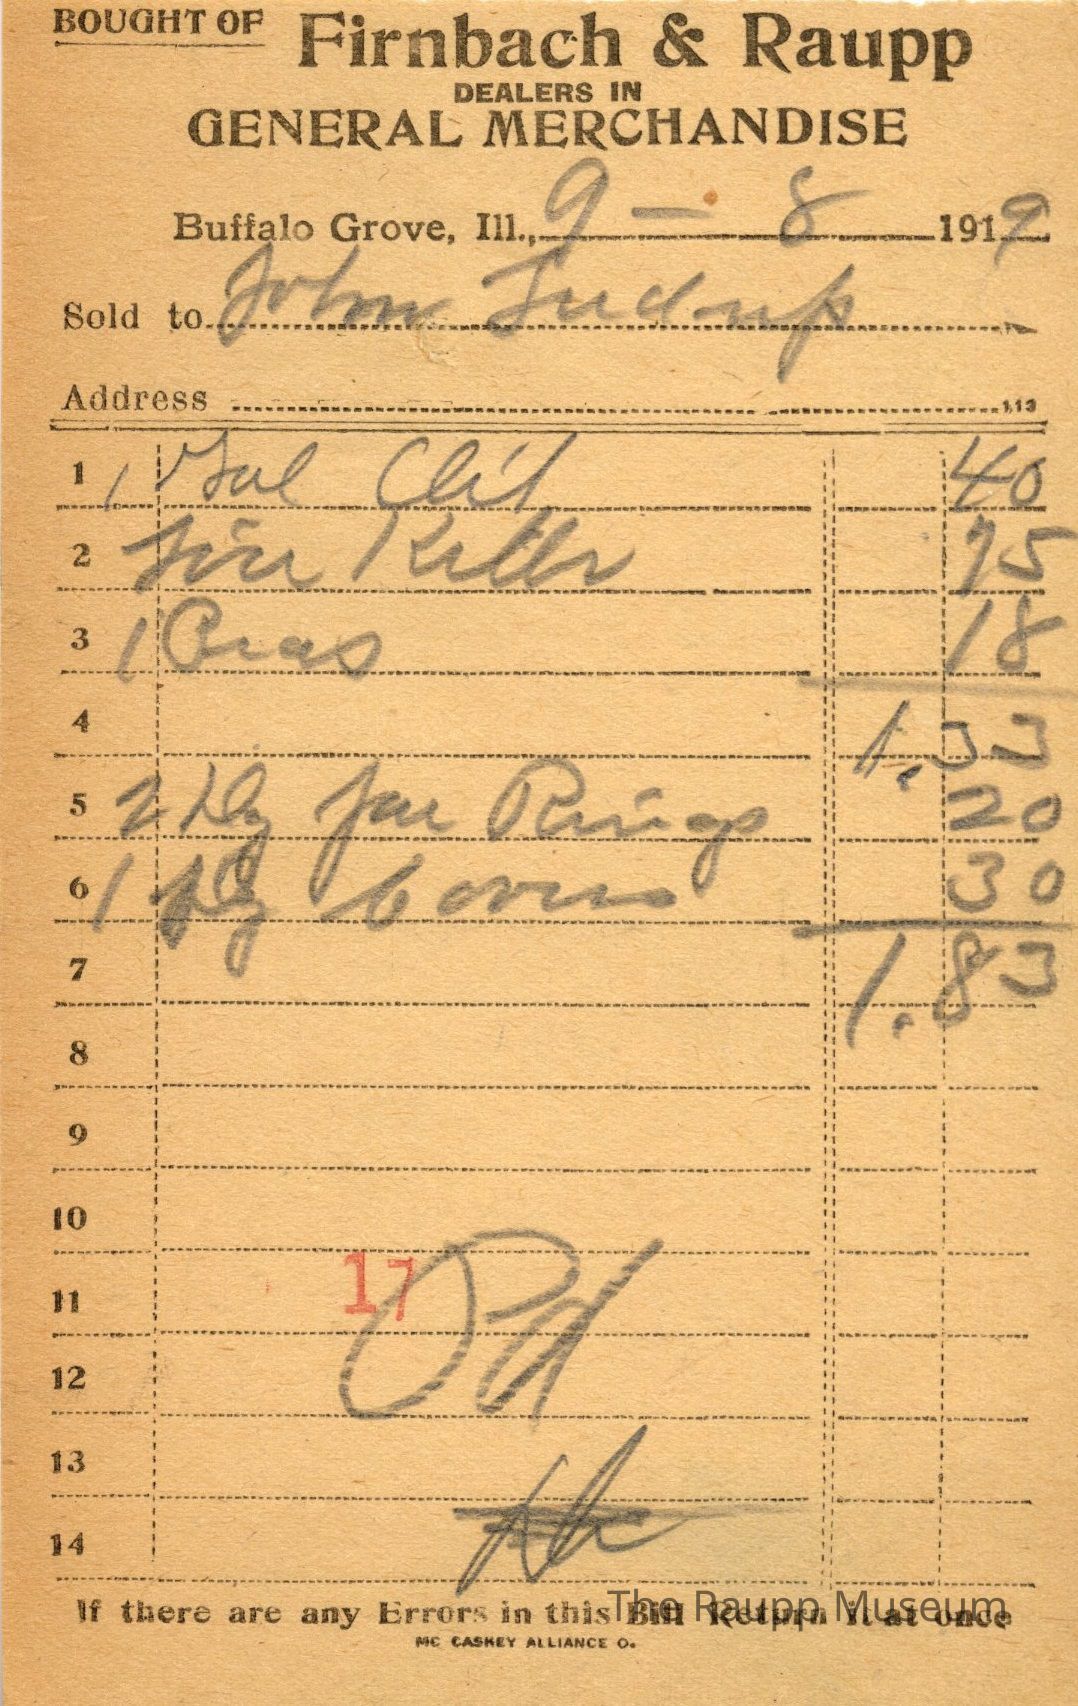 BOUGHT OF Firnbach & Raupp
DEALERS IN
GENERAL MERCHANDISE
Buffalo Grove, Ill., 9 - 8 1919
Sold to John
Address 113
1 1 Gal 40
2 75
3 1 18
4 1.33
5 2 Dz Jar Rings 20
6 1 Dz Covers 30
7 1.83
8
9
10
11 17 Pd
12
13
14
If there are any Errors in this Bill Return it at once
The Raupp Museum
MC CASKEY ALLIANCE O.